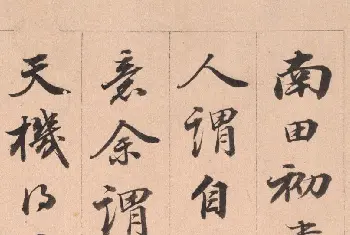 南田初
人謂自
余謂
天機